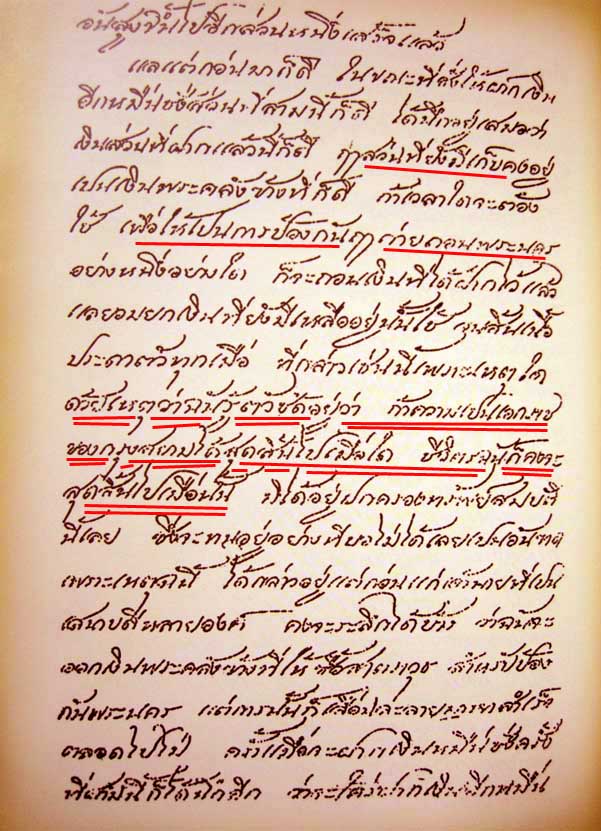 อันสูงขึ้นไปอีกส่วนหนึ่งเสร็จแล้ว
แลแต่ก่อนมาก็ดี ในขณะที่สั่งให้ฝากเงิน
อีกหมื่นชั่งส่วนที่สามนี้ก็ดี ได้นึกอยู่เสมอว่า
เงินส่วนที่ฝากแล้วนี้ก็ดี ฤๅส่วนที่ยังมีเก็บคงอยู่
เปนเงินพระคลังข้างที่ก็ดี ถ้าเวลาใดจะต้อง
ใช้ เพื่อให้เปนการป้องกันฤๅถ่ายถอนพระนคร
อย่างหนึ่งอย่างใด ก็จะถอนเงินที่ได้ฝากไว้แล้ว
แลยอมยกเงินที่ยังมีเหลืออยู่นั้นใช้ จนสิ้นเนื้อ
ประดาตัวทุกเมื่อ ที่กล่าวเช่นนี้เพราะเหตุใด
ด้วยเหตุว่าฉันรู้ตัวชัดอยู่ว่า ถ้าความเปนเอกราช
ของกรุงสยามได้สุดสิ้นไปเมื่อใด ชีวิตรฉันก็คงจะ
สุดสิ้นไปเมื่อนั้น มิได้อยู่ปกครองทรัพย์สมบัติ
นี้เลย ซึ่งจะทนอยู่อย่างเทียวไม่ได้เลยเปนอันขาด
เพราะเหตุฉนี้ ได้กล่าวอยู่แต่ก่อนแก่เจ้านายที่เปน
เสนาบดีหลายองค์ คงจะระลึกได้บ้าง ว่าฉันจะ
ออกเงินพระคลังข้างที่ให้ซื้อสาตราวุธ สำหรับป้อง
กันพระนคร แต่การนั้นก็เลื่อนละลายหาสำเร็จ
ตลอดไปไม่ ครั้นเมื่อจะฝากเงินหมื่นชั่งครั้ง
ที่สามนี้ก็ได้นึกอีก ว่าจะใคร่ฝากเงินอีกหมื่น